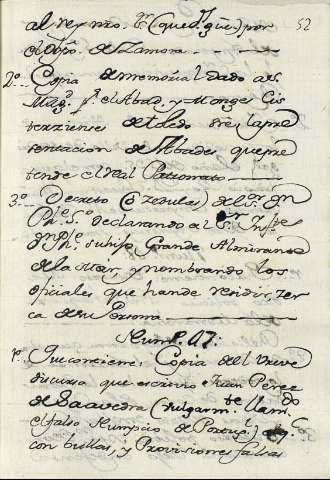 52
al Rey nro. Sr. (que D.s gûe.) por
el Obpo. de Zamora.
2º. Copia de memorial dado a su
Mag.d pr. el Abad, y Monges Cis
tercienses de sre. la pre
sentacion de Abades que pre
tende el real Patronato.
3º. Decreto (ô zedula) del Sr. Dn.
Phe. 5º. declarando al Sr. Infte.
Dn. Phe. su hijo, Grande Almirante
de la Mar, y nombrando los
oficiales que han de residir, zer
ca de su Persona
Num. 17:
1º. Que contiene: Copia del breve
discurso que escrivio Juan Perez
de Saavedra (vulgarm.te llam.do
el falso Nuncio de Portugl.)
con bullas, y Provisiones falsas